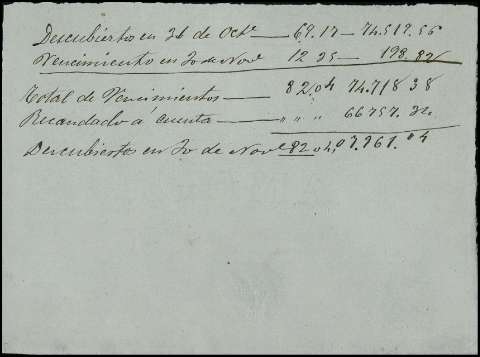 Descubierto en 31 de Octe — 69.17 — 74.519.56
Vencimiento en 30 de Nove 12 35 — 198.82
Total de Vencimientos — 82.04 74.718 38
Recaudado á cuenta — " " " 66757.34
Descubiertos en 30 de Nove 82 04, 07.961.04